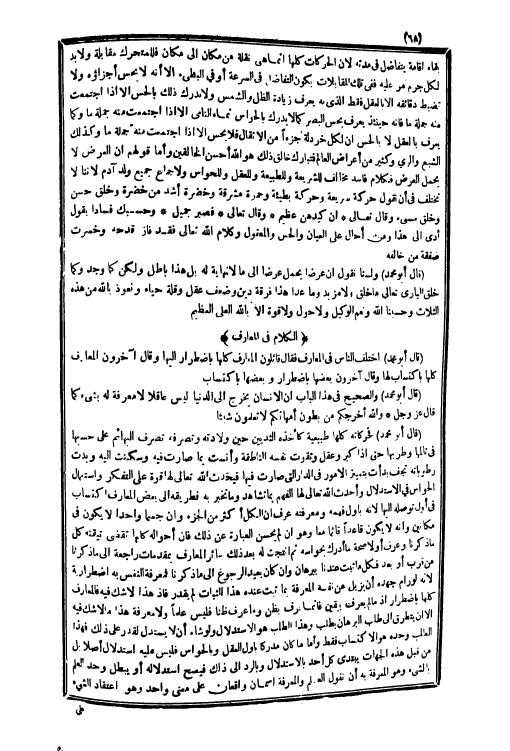 (٦٨)
بقاء اقامة يتفاضل فى مدته لان الحركات كلها انما هى نقلة من مكان الى مكان فللمتحرك مقابلة ولابد
لكل جرم مر عليه ففى تلك المقابلات يكون التفاضل فى السرعة أو فى البطىء الا أنه لا يحس أجزاؤه ولا
تضبط دقائقه الا بالعقل فقط الذى به يعرف زيادة الظل والشمس ولا يدرك ذلك بالحس الا اذا اجتمعت
منه جملة ما فانه حينئذ يعرف بحس البصر كما لا يدرك بالحواس نماء النامى الا اذا اجتمعت منه جملة ما وكما
يعرف بالعقل لا بالحس ان لكل خردلة جزءاً من الاثقال فلا يحس الا اذا اجتمعت منه جملة ما وكذلك
الشبع والرى وكثير من أعراض العالم فتبارك خالق ذلك هو الله أحسن الخالقين وأما قولهم ان العرض لا
يحمل العرض فكلام فاسد مخالف للشريعة وللطبيعة وللعقل وللحواس ولاجماع جميع ولد آدم لاننا لا
نختلف فى أن نقول حركة سريعة وحركة بطيئة وحمرة مشرقة وخضرة أشد من خضرة وخلق حسن
وخلق سىء وقال تعالى * ان كيدهن عظيم * وقال تعالى * فصبر جميل * وحسبك فسادا بقول
أدى الى هذا ومن أحال على العيان والحس والمعقول وكلام الله تعالى فقد فاز قدحه وخسرت
صفقة من خالفه
(قال أبو محمد) ولسنا نقول ان عرضا يحمل عرضا الى ما لانهاية له بل هذا باطل ولكن كما وجد وكما
خلق البارى تعالى ما خلق ولا مزيد وما عدا هذا فرقة دين وضعف عقل وقلة حياء ونعوذ بالله من هذه
الثلاث وحسبنا الله ونعم الوكيل ولا حول ولا قوة الا بالله العلى العظيم
﴿ الكلام فى المعارف ﴾
(قال أبو محمد) اختلف الناس فى المعارف فقال قائلون المعارف كلها باضطرار اليها وقال آخرون المعارف
كلها باكتساب لها وقال آخرون بعضها باضطرار و بعضها باكتساب
(قال أبو محمد) والصحيح فى هذا الباب ان الانسان يخرج الى الدنيا ليس عاقلا لا معرفة له بشىء كما
قال عز وجل * والله أخرجكم من بطون أمهاتكم لا تعلمون شيئا
(قال أبو محمد) فحركاته كلها طبيعية كأخذه الثديين حين ولادته وتصرفه تصرف البهائم على حسبها
فى تألمها وطربها حتى اذا كبر وعقل وتقوت نفسه الناطقة وأنست بما صارت فيه وسكنت اليه وبدت
رطوباته تجف بدأت بتمييز الامور فى الدار التى صارت فيها فيحدث الله تعالى لها قوة على التفكر واستعمال
الحواس فى الاستدلال وأحدث الله تعالى لها الفهم بما تشاهد وما تخبر به فطريقه الى بعض المعارف اكتساب
فى أول توصله اليها لانه بأول فهمه ومعرفته عرف ان الكل أكثر من الجزء وان جسما واحدا لا يكون فى
مكانين وانه لا يكون قاعداً قائما معا وهو ان لم يحسن العبارة عن ذلك فان أحواله كلها تقتضى تيقنه كل
ما ذكرنا وعرف أولا صحة ما أدرك بحواسه ثم انتجت له بعد ذلك سائر المعارف بمقدمات راجعة الى ما ذكرنا
من قرب أو بعد فكل ما ثبت عندنا ببرهان وان كان بعيد الرجوع الى ما ذكرنا فمعرفة النفس به اضطرارية
لانه لو رام جهده أن يزيل عن نفسه المعرفة بما ثبت عنده هذا الثبات لم يقدر فاذ هذا لا شك فيه فالمعارف
كلها باضطرار اذ ما لم يعرف بيقين فانما عرف بظن وما عرف ظنا فليس علماً ولا معرفة هذا ما لا شك فيه
الا ان يتطرق الى طلب البرهان بطلب وهذا الطلب هو الاستدلال ولو شاء أن لا يستدل لقدر على ذلك فهذا
الطلب وحده هو الاكتساب فقط وأما ما كان مدركا بأول العقل وبالحواس فليس عليه استدلال أصلا بل
من قبل هذه الجهات يبتدى كل أحد بالاستدلال وبالرد الى ذلك فيصح استدلاله أو يبطل وحد العلم
بالشىء وهو المعرفة به أن نقول العلم والمعرفة اسمان واقعان على معنى واحد وهو اعتقاد الشىء
على